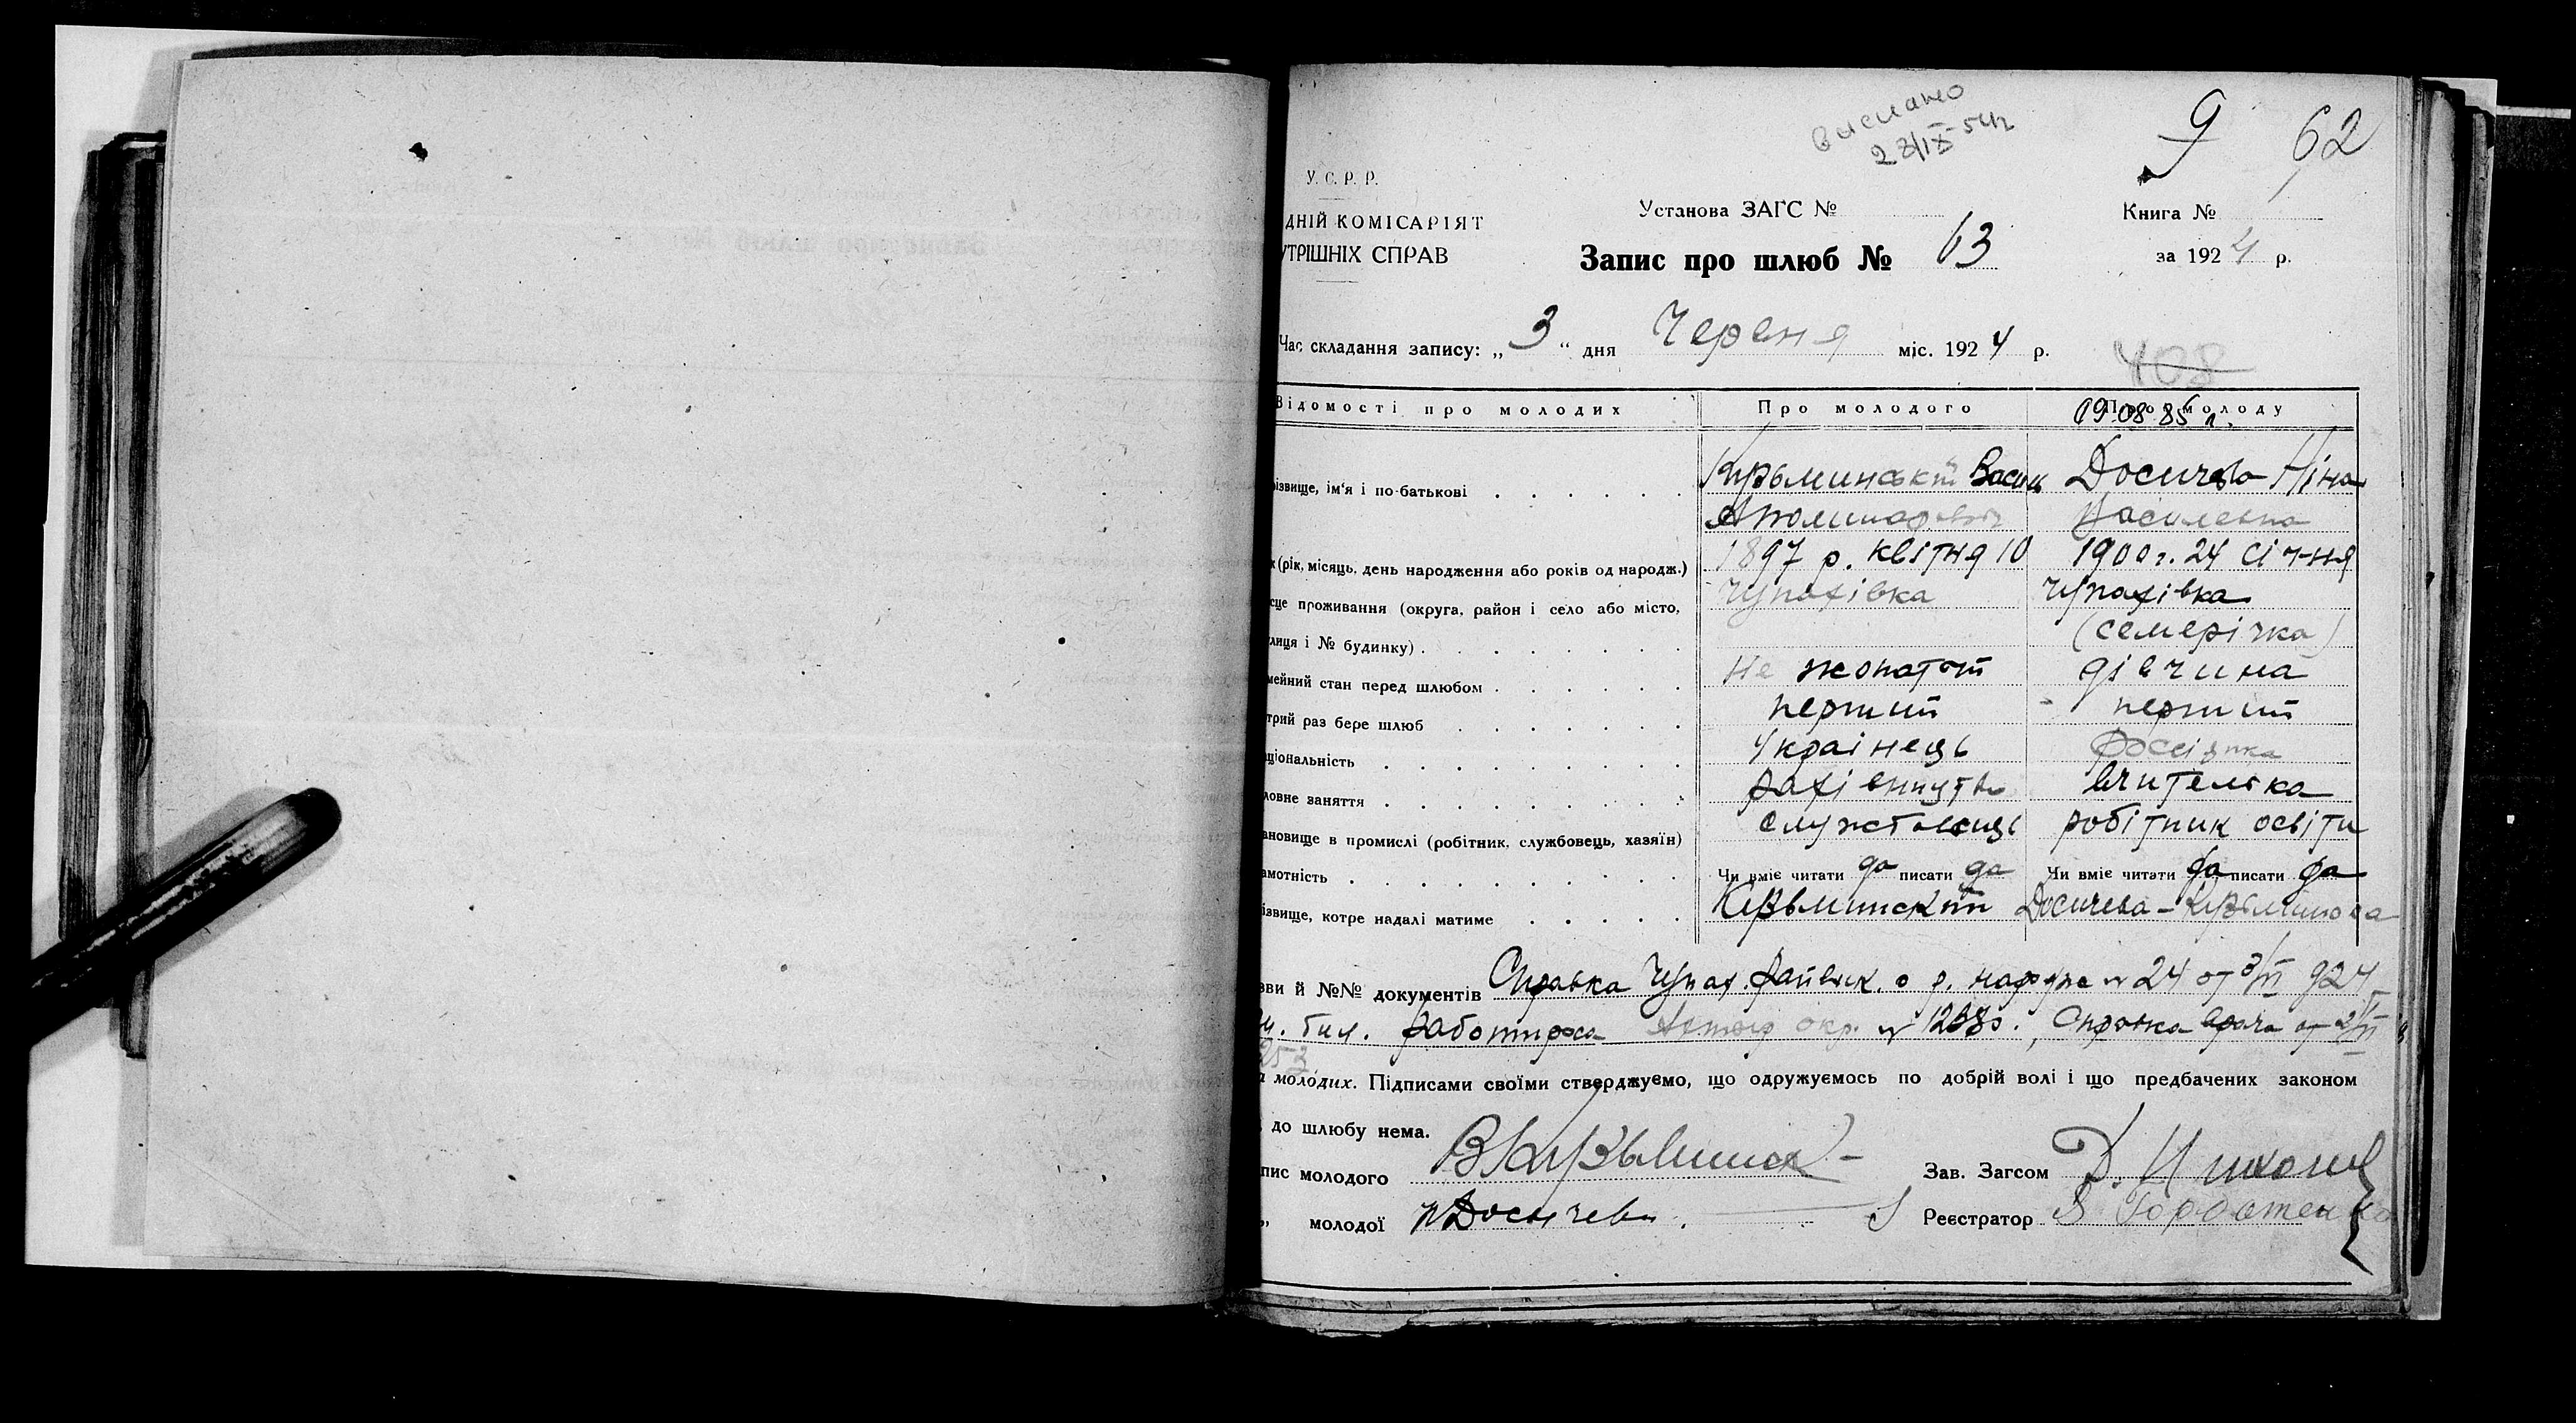 выслано
9 62
У. С. Р. Р.
ДНІЙ КОМІСАРІЯТ Установа ЗАГС № Книга №
УТРІШНІХ СПРАВ Запис про шлюб № 63 за 1924 р.
Час складання запису: „ 3 “ дня Червня міс. 1924 р.
408
Відомості про молодих Про молодого Про молоду
19.08.85 г.
різвище, ім'я і по-батькові Кузьминський Василь Досичева Ніна
Аполинарович Василевна
(рік, місяць, день народження або років од народж.) 1897 р. квітня 10 1900 г. 24 січ-ня
сце проживання (округа, район і село або місто, Чупахівка Чупахівка
лиця і № будинку) (семерічка)
мейний стан перед шлюбом Не жонатий дівчина
трий раз бере шлюб перший перший
ціональність Українець Росіянка
ловне заняття рахівництво вчителька
ановище в промислі (робітник, службовець, хазяїн) службовець робітник освіти
амотність Чи вміє читати да писати да Чи вміє читати да писати да
ізвище, котре надалі матиме Кузьминский Досичева-
зви й №№ документів Справка Чупах. Райвик. о р. № 24 от 3/VI 924
бил. Работпроса окр. № Справка врача от 2/VI
253
а молодих. Підписами своїми стверджуємо, що одружуємось по добрій волі і що предбачених законом
до шлюбу нема.
пис молодого ВКузьминск Зав. Загсом Д.
„ молодої НДосичева. Реєстратор